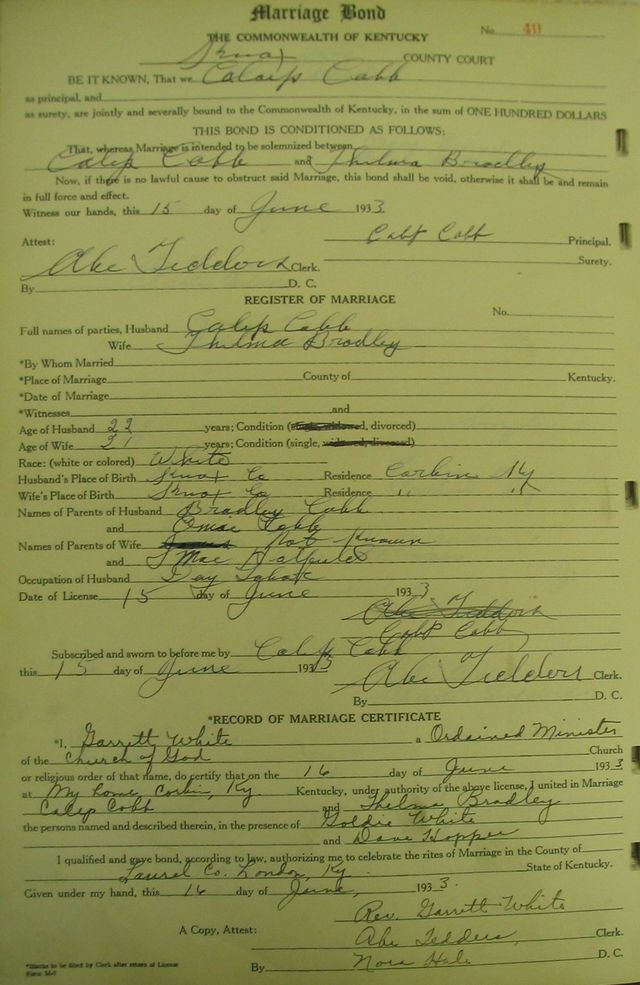 Marriage Bond
THE COMMONWEALTH OF KENTUCKY No.
Knox COUNTY COURT
BE IT KNOWN, That we Calaip Cobb
as principal, and
as surety, are jointly and severally bound to the Commonwealth of Kentucky, in the sum of ONE HUNDRED DOLLARS
THIS BOND IS CONDITIONED AS FOLLOWS:
That, whereas Marriage is intended to be solemnized between
Calip Cobb and Thelma Bradley
Now, if there is no lawful cause to obstruct said Marriage, this bond shall be void, otherwise it shall be and remain
in full force and effect.
Witness our hands, this 15 day of June 1933
Attest: Calip Cobb Principal.
Abe Tedders Clerk. Surety.
By D. C.
REGISTER OF MARRIAGE
No.
Full names of parties, Husband Calip Cobb
Wife Thelma Bradley
*By Whom Married
*Place of Marriage County of Kentucky.
*Date of Marriage
*Witnesses and
Age of Husband 22 years; Condition (single, widowed, divorced)
Age of Wife 21 years; Condition (single, widowed, divorced)
Race: (white or colored) White
Husband's Place of Birth Knox Co Residence Corbin Ky
Wife's Place of Birth Knox Co Residence " "
Names of Parents of Husband Bradley Cobb
and Cobb
Names of Parents of Wife Not Known
and Mae
Occupation of Husband Day
Date of License 15 day of June 1933
Abe Tedders
Calip Cobb
Subscribed and sworn to before me by Calip Cobb
this 15 day of June 1933 Abe Tedders Clerk.
By D. C.
*RECORD OF MARRIAGE CERTIFICATE
*I, Garrett White a Ordained Minister
of the Church of God Church
or religious order of that name, do certify that on the 16 day of June 1933
at My home, Corbin, Ky Kentucky, under authority of the above license, I united in Marriage
Calip Cobb and Thelma Bradley
the persons named and described therein, in the presence of Goldie White
and Dave Hopper
I qualified and gave bond, according to law, authorizing me to celebrate the rites of Marriage in the County of
Laurel Co. London, Ky. State of Kentucky.
Given under my hand, this 16 day of June, 1933.
Rev. Garrett White
A Copy, Attest: Abe Tedders, Clerk.
By Nora Hale D. C.
*Blanks to be filed by Clerk after return of License